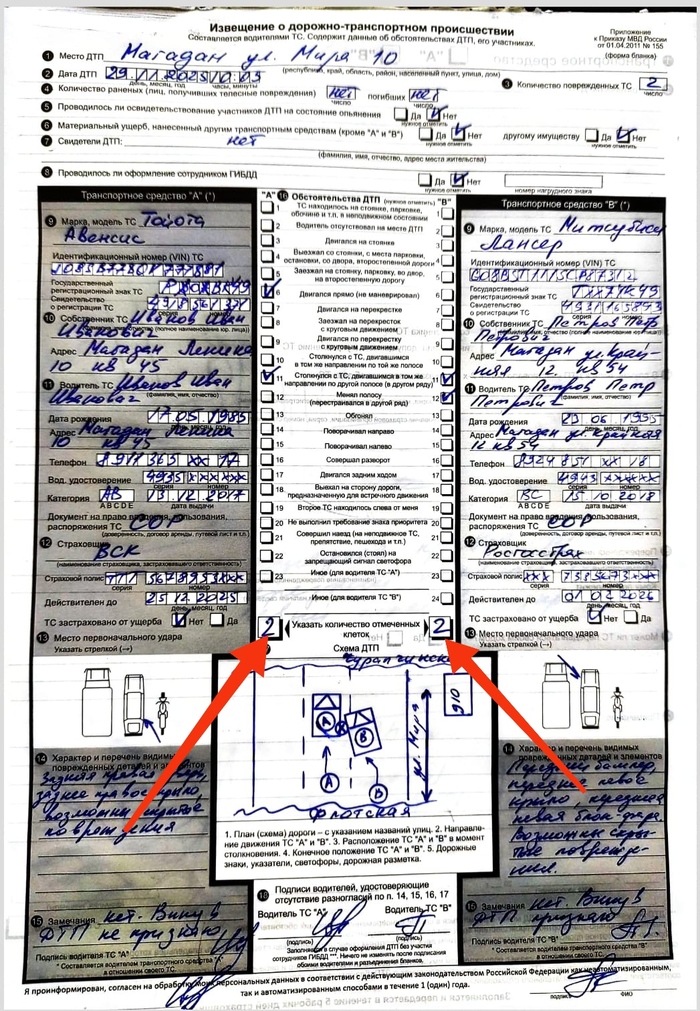 Извещение о дорожно-транспортном происшествии
Приложение
к Приказу МВД России
от 01.04.2011 № 155
(форма бланка)
Составляется водителями ТС. Содержит данные об обстоятельствах ДТП, его участниках.
1 Место ДТП Магадан ул. Мира 10
(республика, край, область, район, населенный пункт, улица, дом)
2 Дата ДТП 29.11.2025 10:05
день, месяц, год часы, минуты
3 Количество поврежденных ТС 2
число
4 Количество раненых (лиц, получивших телесные повреждения) нет погибших нет
число число
5 Проводилось ли освидетельствование участников ДТП на состояние опьянения Да Нет
нужное отметить
6 Материальный ущерб, нанесенный другим транспортным средствам (кроме "А" и "В") Да Нет другому имуществу Да Нет
нужное отметить нужное отметить
7 Свидетели ДТП: нет
(фамилия, имя, отчество, адрес места жительства)
8 Проводилось ли оформление сотрудником ГИБДД Да Нет
нужное отметить номер нагрудного знака
Транспортное средство "А" (*)
9 Марка, модель ТС Тойота
Авенсис
Идентификационный номер (VIN) ТС
Государственный
регистрационный знак ТС
Свидетельство
о регистрации ТС
серия номер
10 Собственник ТС Иванов Иван
Иванович
Адрес Магадан Ленина
10 кв 45
11 Водитель ТС Иванов Иван
Иванович (фамилия, имя, отчество)
Дата рождения 17.05 1985
день, месяц, год
Адрес Магадан Ленина
10 кв 45
Телефон 8911 363 xx 17
Вод. удостоверение 4935 xxxxxx
серия номер
Категория АВ 13.12.2017
A B C D E дата выдачи
Документ на право владения, пользования,
распоряжения ТС СОР
(доверенность, договор аренды, путевой лист и т.п.)
12 Страховщик
ВСК
(наименование страховщика, застраховавшего ответственность)
Страховой полис ТТТ
серия номер
Действителен до 25 12 2025
день, месяц, год
ТС застраховано от ущерба Нет Да
13 Место первоначального удара
Указать стрелкой (→)
14 Характер и перечень видимых
поврежденных деталей и элементов
Задняя правая дверь,
заднее правое крыло,
возможны скрытые
повреждения
15 Замечания нет. Вину в
ДТП не признаю
Подпись водителя ТС "А"
* Составляется водителем транспортного средства "А"
в отношении своего ТС.
"А" 16 Обстоятельства ДТП (нужное отметить) "В"
1 ТС находилось на стоянке, парковке,
обочине и т.п. в неподвижном состоянии 1
2 Водитель отсутствовал на месте ДТП 2
3 Двигался на стоянке 3
4 Выезжал со стоянки, с места парковки,
остановки, со двора, второстепенной дороги 4
5 Заезжал на стоянку, парковку, во двор,
на второстепенную дорогу 5
6 Двигался прямо (не маневрировал) 6
7 Двигался на перекрестке 7
8 Заезжал на перекресток
с круговым движением 8
9 Двигался по перекрестку
с круговым движением 9
10 Столкнулся с ТС, двигавшимся
в том же направлении по той же полосе 10
11 Столкнулся с ТС, двигавшимся в том же
направлении по другой полосе (в другом ряду) 11
12 Менял полосу
(перестраивался в другой ряд) 12
13 Обгонял 13
14 Поворачивал направо 14
15 Поворачивал налево 15
16 Совершал разворот 16
17 Двигался задним ходом 17
18 Выехал на сторону дороги,
предназначенную для встречного движения 18
19 Второе ТС находилось слева от меня 19
20 Не выполнил требование знака приоритета 20
21 Совершил наезд (на неподвижное ТС,
препятствие, пешехода и т.п.) 21
22 Остановился (стоял) на
запрещающий сигнал светофора 22
23 Иное (для водителя ТС "А")
Иное (для водителя ТС "В") 24
2 Указать количество отмеченных
клеток 2
Схема ДТП
А
В
А
В
ул. Мира
д10
Флотская
1. План (схема) дороги – с указанием названий улиц. 2. Направле-
ние движения ТС "А" и "В". 3. Расположение ТС "А" и "В" в момент
столкновения. 4. Конечное положение ТС "А" и "В". 5. Дорожные
знаки, указатели, светофоры, дорожная разметка.
18 Подписи водителей, удостоверяющие
отсутствие разногласий по п. 14, 15, 16, 17
Водитель ТС "А" Водитель ТС "В"
(подпись) (подпись)
Заполняется в случае оформления ДТП без участия
сотрудников ГИБДД ***. Ничего не изменять после подписания
обоими водителями и разъединения бланков.
Транспортное средство "В" (*)
9 Марка, модель ТС Митсубиси
Лансер
Идентификационный номер (VIN) ТС
Государственный
регистрационный знак ТС
Свидетельство
о регистрации ТС
серия номер
10 Собственник ТС Петров Петр
Петрович
Адрес Магадан ул. Край-
няя 12 кв 54
11 Водитель ТС Петров Петр
Петрович (фамилия, имя, отчество)
Дата рождения 23 06 1955
день, месяц, год
Адрес Магадан ул. Крайняя
12 кв 54
Телефон 8924 851 xx 18
Вод. удостоверение 4943 xxxxxx
серия номер
Категория ВС 15 10 2018
A B C D E дата выдачи
Документ на право владения, пользования,
распоряжения ТС СОР
(доверенность, договор аренды, путевой лист и т.п.)
12 Страховщик
Росгосстрах
(наименование страховщика, застраховавшего ответственность)
Страховой полис ххх
серия номер
Действителен до 01 02 2026
день, месяц, год
ТС застраховано от ущерба Нет Да
13 Место первоначального удара
Указать стрелкой (→)
14 Характер и перечень видимых
поврежденных деталей и элементов
Передний бампер,
переднее левое
крыло, передняя
левая блок-фара.
Возможны скры-
тые поврежде-
ния.
15 Замечания нет. Вину в
ДТП признаю
Подпись водителя ТС "В"
* Составляется водителем транспортного средства "В"
в отношении своего ТС.
Я проинформирован, согласен на обработку моих персональных данных в соответствии с действующим законодательством Российской Федерации как неавтоматизированным,
так и автоматизированным способами в течение 1 (один) года.
подпись ФИО